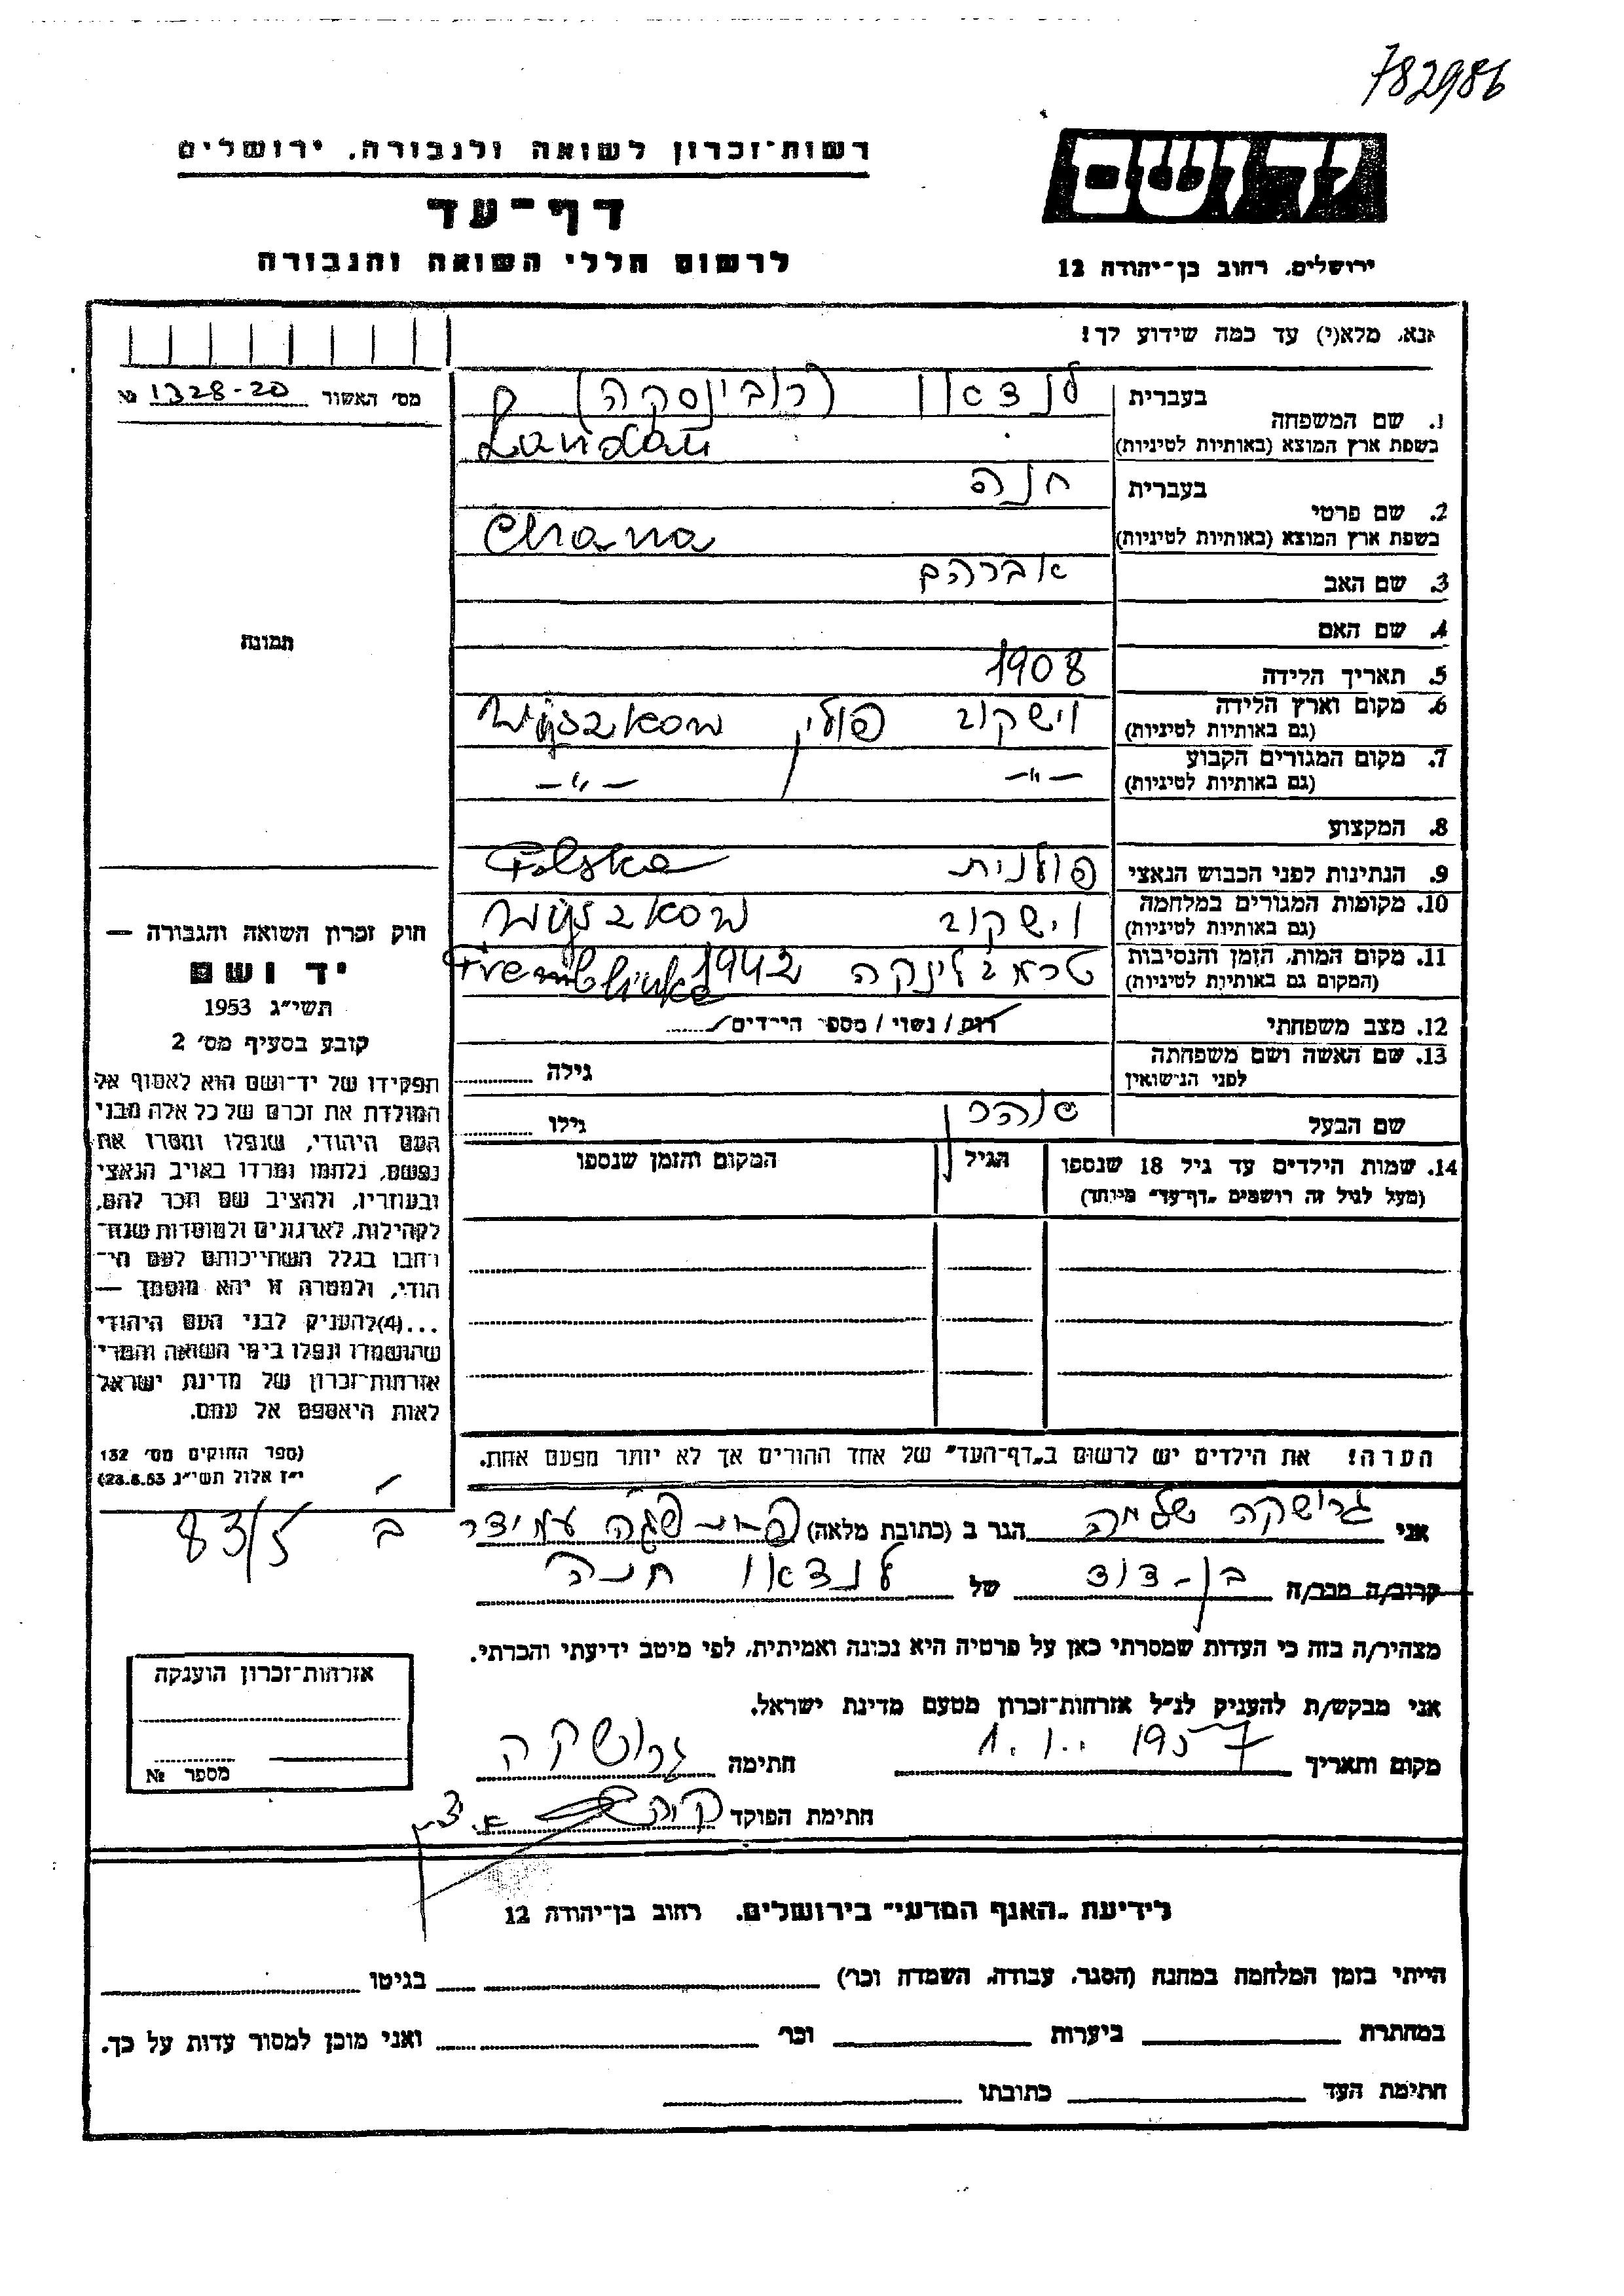 782986
יד ושם
רשות־זכרון לשואה ולגבורה, ירושלים
דף־עד
לרשום חללי השואה והגבורה
ירושלים, רחוב בן־יהודה 12
אנא, מלא(י) עד כמה שידוע לך!
מס׳ האשור 1328-20 №
1. שם המשפחה
בעברית לנדאו (רובינסקה)
בשפת ארץ המוצא (באותיות לטיניות) Landau
2. שם פרטי
בעברית חנה
בשפת ארץ המוצא (באותיות לטיניות) Chana
3. שם האב אברהם
4. שם האם
5. תאריך הלידה 1908
6. מקום וארץ הלידה וישקוב פולין
(גם באותיות לטיניות)
7. מקום המגורים הקבוע —"— —"—
(גם באותיות לטיניות)
8. המקצוע
9. הנתינות לפני הכבוש הנאצי פולנית Polska
10. מקומות המגורים במלחמה וישקוב
(גם באותיות לטיניות)
11. מקום המות, הזמן והנסיבות טרמבלינקה 1942 Tremblinka
(המקום גם באותיות לטיניות)
12. מצב משפחתי רוק / נשוי / מספר הילדים
13. שם האשה ושם משפחתה
לפני הנישואין
גילה
שם הבעל
גילו
14. שמות הילדים עד גיל 18 שנספו
(מעל לגיל זה רושמים „דף־עד״ מיוחד)
הגיל
המקום והזמן שנספו
תמונה
חוק זכרון השואה והגבורה —
יד ושם
תשי״ג 1953
קובע בסעיף מס׳ 2
תפקידו של יד־ושם הוא לאסוף אל
המולדת את זכרם של כל אלה מבני
העם היהודי, שנפלו ומסרו את
נפשם, נלחמו ומרדו באויב הנאצי
ובעוזריו, ולהציב שם וזכר להם,
לקהילות, לארגונים ולמוסדות שנח־
רבו בגלל השתייכותם לעם הי־
הודי, ולמטרה זו יהא מוסמך —
...(4)להעניק לבני העם היהודי
שהושמדו ונפלו בימי השואה והמרי
אזרחות־זכרון של מדינת ישראל
לאות היאספם אל עמם.
(ספר החוקים מס׳ 132
י״ז אלול תשי״ג 28.8.53)
הערה! את הילדים יש לרשום ב„דף־העד״ של אחד ההורים אך לא יותר מפעם אחת.
אני גרושקה שלמה הגר ב (כתובת מלאה) עמידר ב 83/5
קרוב/ה מכר/ה בן-דוד של לנדאו חנה
מצהיר/ה בזה כי העדות שמסרתי כאן על פרטיה היא נכונה ואמיתית, לפי מיטב ידיעתי והכרתי.
אני מבקש/ת להעניק לנ״ל אזרחות־זכרון מטעם מדינת ישראל.
מקום ותאריך 1957 חתימה גרושקה
חתימת הפוקד
אזרחות־זכרון הוענקה
מספר №
לידיעת „האגף המדעי״ בירושלים, רחוב בן־יהודה 12
הייתי בזמן המלחמה במחנה (הסגר, עבודה, השמדה וכו׳) בגיטו
במחתרת ביערות וכו׳ ואני מוכן למסור עדות על כך.
חתימת העד כתובתו